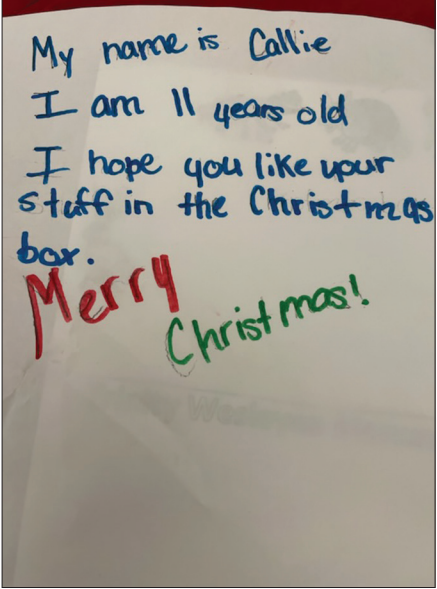 My name is Callie
I am 11 years old
I hope you like your
stuff in the Christmas
box.
Merry
Christmas!